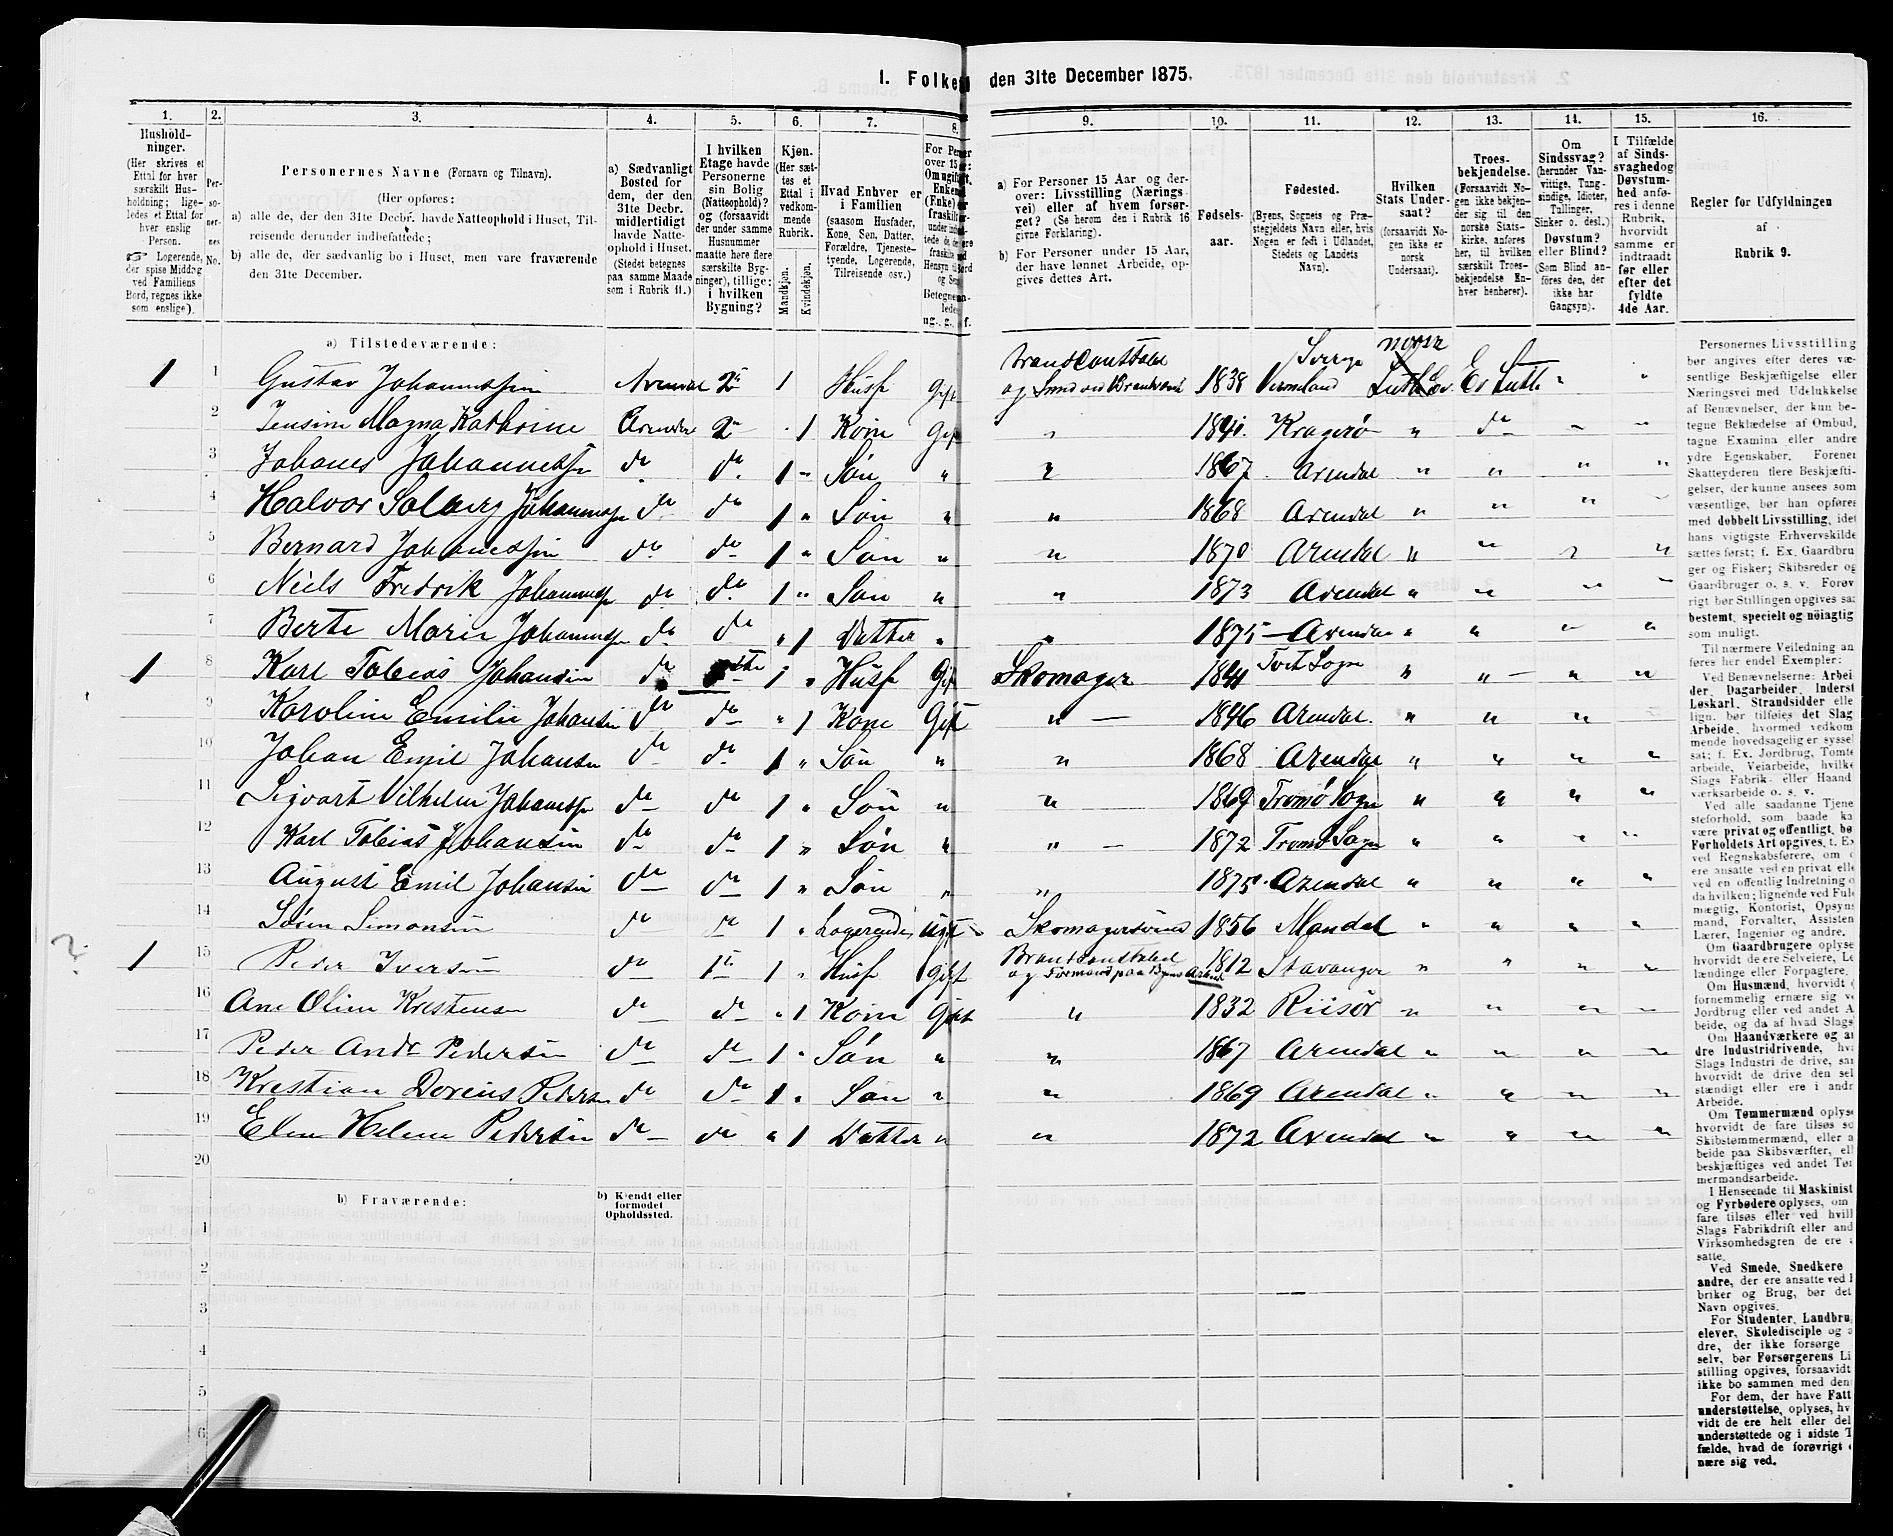 1. Folke den 31te December 1875.
1. 2. 3. 4. 5. 6. 7. 8. 9. 10. 11. 12. 13. 14. 15. 16.
Hushold-
ninger.
(Her skrives et
Ettal for hver
særskilt Hus-
holdning; lige-
ledes et Ettal for
hver enslig
Person.
☞ Logerende,
der spise Middag
ved Familiens
Bord, regnes ikke
som enslige).
Per-
so-
ner-
nes
No.
Personernes Navne (Fornavn og Tilnavn).
(Her opføres:
a) alle de, der den 31te Decbr. havde Natteophold i Huset, Til-
reisende derunder indbefattede;
b) alle de, der sædvanlig bo i Huset, men vare fraværende
den 31te December.
a) Sædvanligt
Bosted for
dem, der den
31te Decbr.
midlertidigt
havde Natte-
ophold i Huset.
(Stedet betegnes
paa samme Maade
som i Rubrik 11.)
I hvilken
Etage havde
Personerne
sin Bolig
(Natteophold)?
og (forsaavidt
der under samme
Husnummer
maatte høre flere
særskilte Byg-
ninger), tillige:
i hvilken
Bygning?
Kjøn.
(Her sæt-
tes et
Ettal i
vedkom-
mende
Rubrik.
Mandkjøn.
Kvindekjøn.
Hvad Enhver er
i Familien
(saasom Husfader,
Kone, Søn, Datter,
Forældre, Tjeneste-
tyende, Logerende,
Tilreisende osv.)
a) For Personer 15 Aar og der-
over: Livsstilling (Nærings-
vei) eller af hvem forsør-
get? (Se herom den i Rubrik 16
givne Forklaring).
b) For Personer under 15 Aar,
der have lønnet Arbeide, op-
gives dettes Art.
Fødsels-
aar.
Fødested.
(Byens, Sognets og Præ-
stegjeldets Navn eller, hvis
Nogen er født i Udlandet,
Stedets og Landets
Navn).
Hvilken
Stats Under-
saat?
(forsaavidt No-
gen ikke er
norsk
Undersaat).
Troes-
bekjendelse.
(Forsaavidt No-
gen ikke bekjen-
der sig til den
norske Stats-
kirke, anføres
her, til hvilken
særskilt Troes-
bekjendelse En-
hver henhører).
Om
Sindssvag?
(herunder Van-
vittige, Tung-
sindige, Idioter,
Tullinger,
Sinker o. desl.)
Døvstum?
eller Blind?
(Som Blind an-
føres den, der
ikke har
Gangsyn).
I Tilfælde
af Sinds-
svaghedog
Døvstum-
hed anfø-
res i denne
Rubrik,
hvorvidt
samme er
indtraadt
før eller
efter det
fyldte
4de Aar.
Regler for Udfyldningen
af
Rubrik 9.
a) Tilstedeværende:
1 1 Gustav Johannessen Arendal 2 1 Husf Gift Brandconstabel og 1838 Sverige Vermland norsk Ev Luth
2 Magna Kathrine Arendal 2 1 Kone Gift 1840. Kragerø do
3 Johanes Johannessen do do 1 Søn 1867 Arendal
4 Halvor Solberg Johannessen do do 1 Søn 1868 Arendal
5 Bernard Johanessen do do 1 Søn 1870 Arendal
6 Niels Fredrik Johannessen do do 1 Søn 1873 Arendal
7 Berte Marie Johannessen do do 1 Datter 1875 Arendal
1 8 Karl Tobias Johansen do 1 Husf Gift Skomager 1841 Sogn
9 Karoline Emilie Johansen do do 1 Kone Gift 1846 Arendal.
10 Johan Emil Johansen do do 1 Søn 1868 Arendal
11 Sigvart Vilhelm Johanessen do do 1 Søn 1869 Tromø Sogn
12 Karl Tobias Johansen do do 1 Søn 1872 Tromø Sogn
13 August Emil Johansen do do 1 Søn 1875. Arendal
14 Søren Simonsen do do 1 Logerende Ugift Skomagersvend 1856 Mandal
? 1 15 Peder Iversen do 1 1 Husf Gift Brandconstabel og Formand paa Byens Arbeide 1812 Stavanger
16 Ane Oline Krestensen do do 1 Kone Gift 1832 Riisør
17 Peder Andr Pedersen do do 1 Søn 1867 Arendal
18 Krestian Doreus Pedersen do do 1 Søn 1869 Arendal
19 Elen Helene Pedersen do do 1 Datter 1872 Arendal
20
b) Fraværende:
b) Kjendt eller
formodet
Opholdssted.
1
2
3
4
5
6
Personernes Livsstilling
bør angives efter deres væ-
sentlige Beskjæftigelse eller
Næringsvei med Udelukkelse
af Benævnelser, der kun be-
tegne Beklædelse af Ombud,
tagne Examina eller andre
ydre Egenskaber. Forener
Skatteyderen flere Beskjæfti-
gelser, der kunne ansees som
væsentlige, bør han opføres
med dobbelt Livsstilling, idet
hans vigtigste Erhvervskilde
sættes først; f. Ex. Gaardbru
ger og Fisker; Skibsreder og
Gaardbruger o. s. v. Forøv
rigt bør Stillingen opgives saa
bestemt, specielt og nøiagtig
som muligt.
Til nærmere Veiledning an
føres her endel Exempler:
Ved Benævnelserne: Arbei
der, Dagarbeider, Inderst
Løskarl, Strandsidder elle
lign. bør tilføies det Slag
Arbeide, hvormed vedkom
mende hovedsagelig er syssel
sat; f. Ex. Jordbrug, Tomte
arbeide, Veiarbeide, hvilke
Slags Fabrik- eller Haand
værksarbeide o. s. v.
Ved alle saadanne Tjene
steforhold, som baade ka
være privat og offentligt, bø
Forholdets Art opgives, f. Ex
ved Regnskabsførere, om
ere ansatte ved en privat elle
ved en offentlig Indretning o
da hvilken; lignende ved Ful
mægtig, Kontorist, Opsyns
mand, Forvalter, Assisten
Lærer, Ingeniør og andre.
Om Gaardbrugere oplyse
hvorvidt de ere Selveiere, Le
lændinge eller Forpagtere.
Om Husmænd, hvorvidt
fornemmelig ernære sig ve
Jordbrug eller ved andet A
beide, og da af hvad Slags
Om Haandværkere og an
dre Industridrivende, hv
Slags Industri de drive, sa
hvorvidt de drive den sel
stændigt eller ere i andr
Arbeide.
Om Tømmermænd oplyse
hvorvidt de fare tilsøs so
Skibstømmermænd, eller a
beide paa Skibsværfter, el
beskjæftiges ved andet Tøm
mermandsarbeide.
I Henseende til Maskinist
og Fyrbødere oplyses, om
fare tilsøs eller ved hvil
Slags Fabrikdrift eller and
Virksomhedsgren de ere
satte.
Ved Smede, Snedkere
andre, der ere ansatte ved
briker og Brug, bør det
Navn opgives.
For Studenter, Landbru
elever, Skoledisciple og a
dre, der ikke forsørge
selv, bør Forsørgerens Li
stilling opgives, forsaavidt
ikke bo sammen med den
For dem, der have Fatt
understøttelse, oplyses, hv
vidt de ere helt eller del
understøttede og i sidste T
fælde, hvad de forøvrigt
nære sig ved.